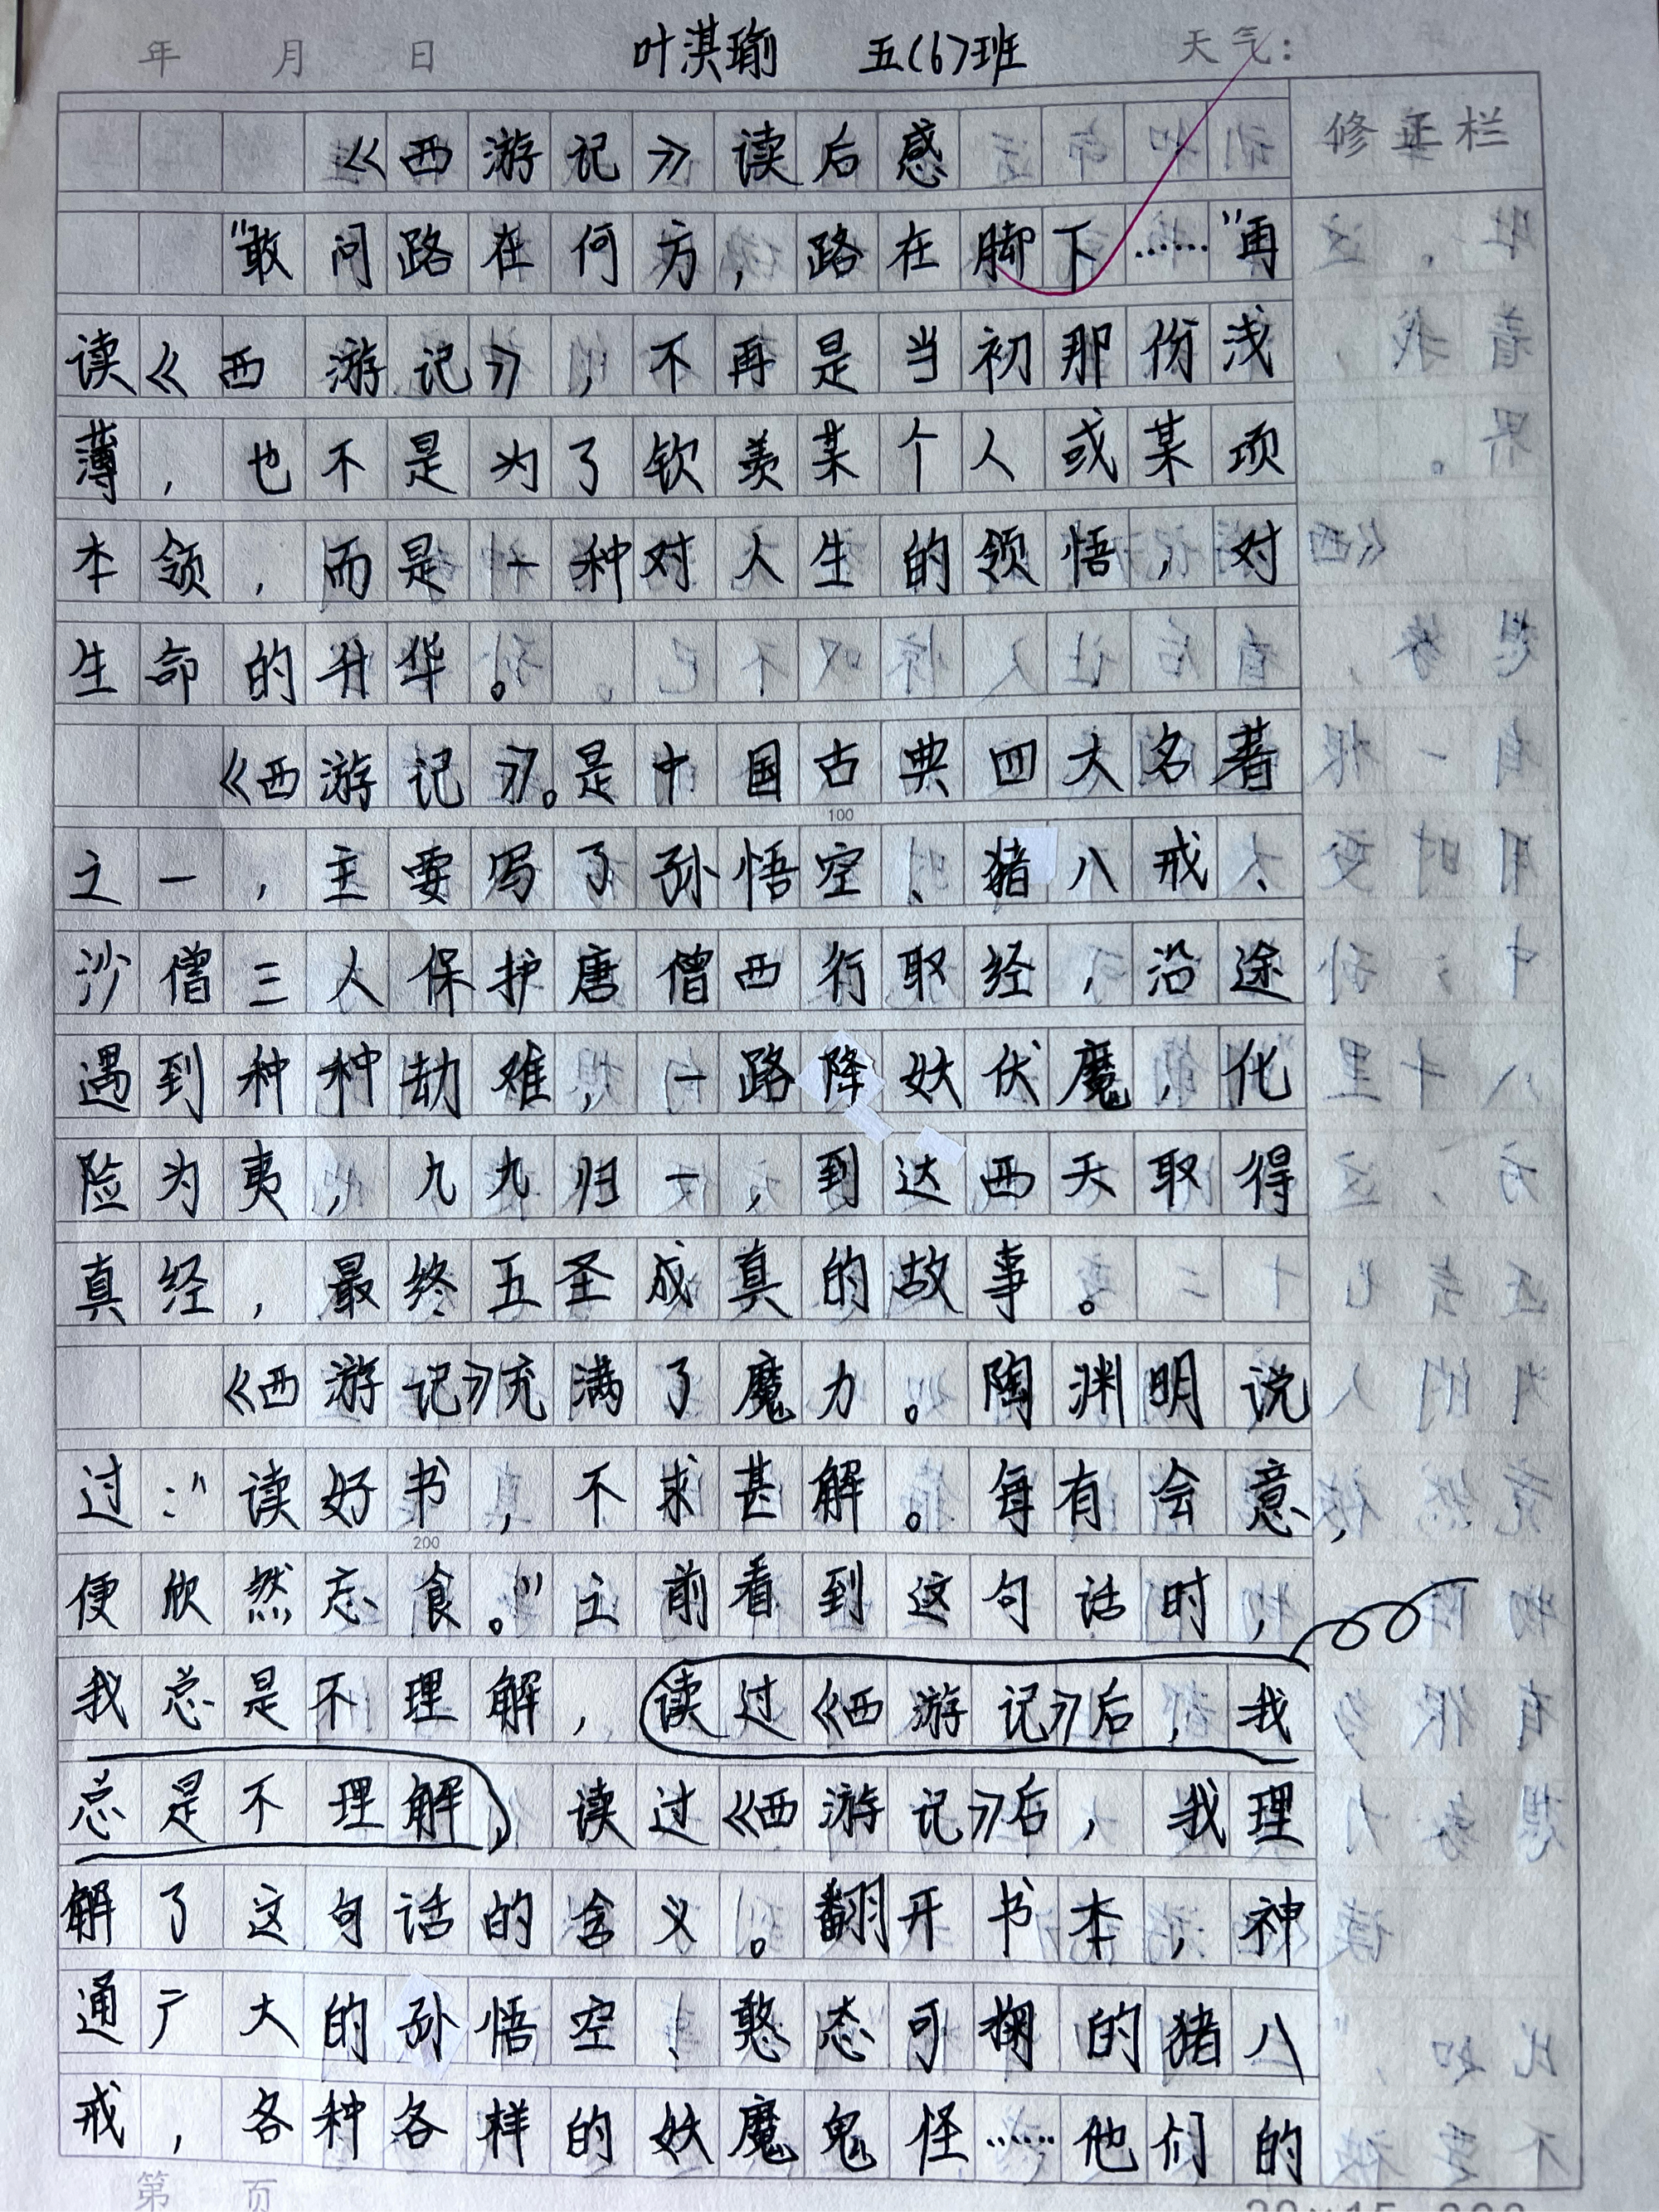 年 月 日 叶淇瑜 五(6)班 天气:
《西游记》读后感 修正栏
“敢问路在何方，路在脚下……”再
读《西游记》，不再是当初那份浅
薄，也不是为了钦羡某个人或某项
本领，而是一种对人生的领悟，对
生命的升华。
《西游记》。是中国古典四大名著
100
之一，主要写了孙悟空、猪八戒、
沙僧三人保护唐僧西行取经，沿途
遇到种种劫难，一路降妖伏魔，化
险为夷，九九归一，到达西天取得
真经，最终五圣成真的故事。
《西游记》充满了魔力。陶渊明说
过：“读好书，不求甚解。每有会意，
200
便欣然忘食。”之前看到这句话时，
我总是不理解，读过《西游记》后，我
总是不理解，读过《西游记》后，我理
解了这句话的含义。翻开书本，神
通广大的孙悟空、憨态可掬的猪八
戒，各种各样的妖魔鬼怪……他们的
第 页